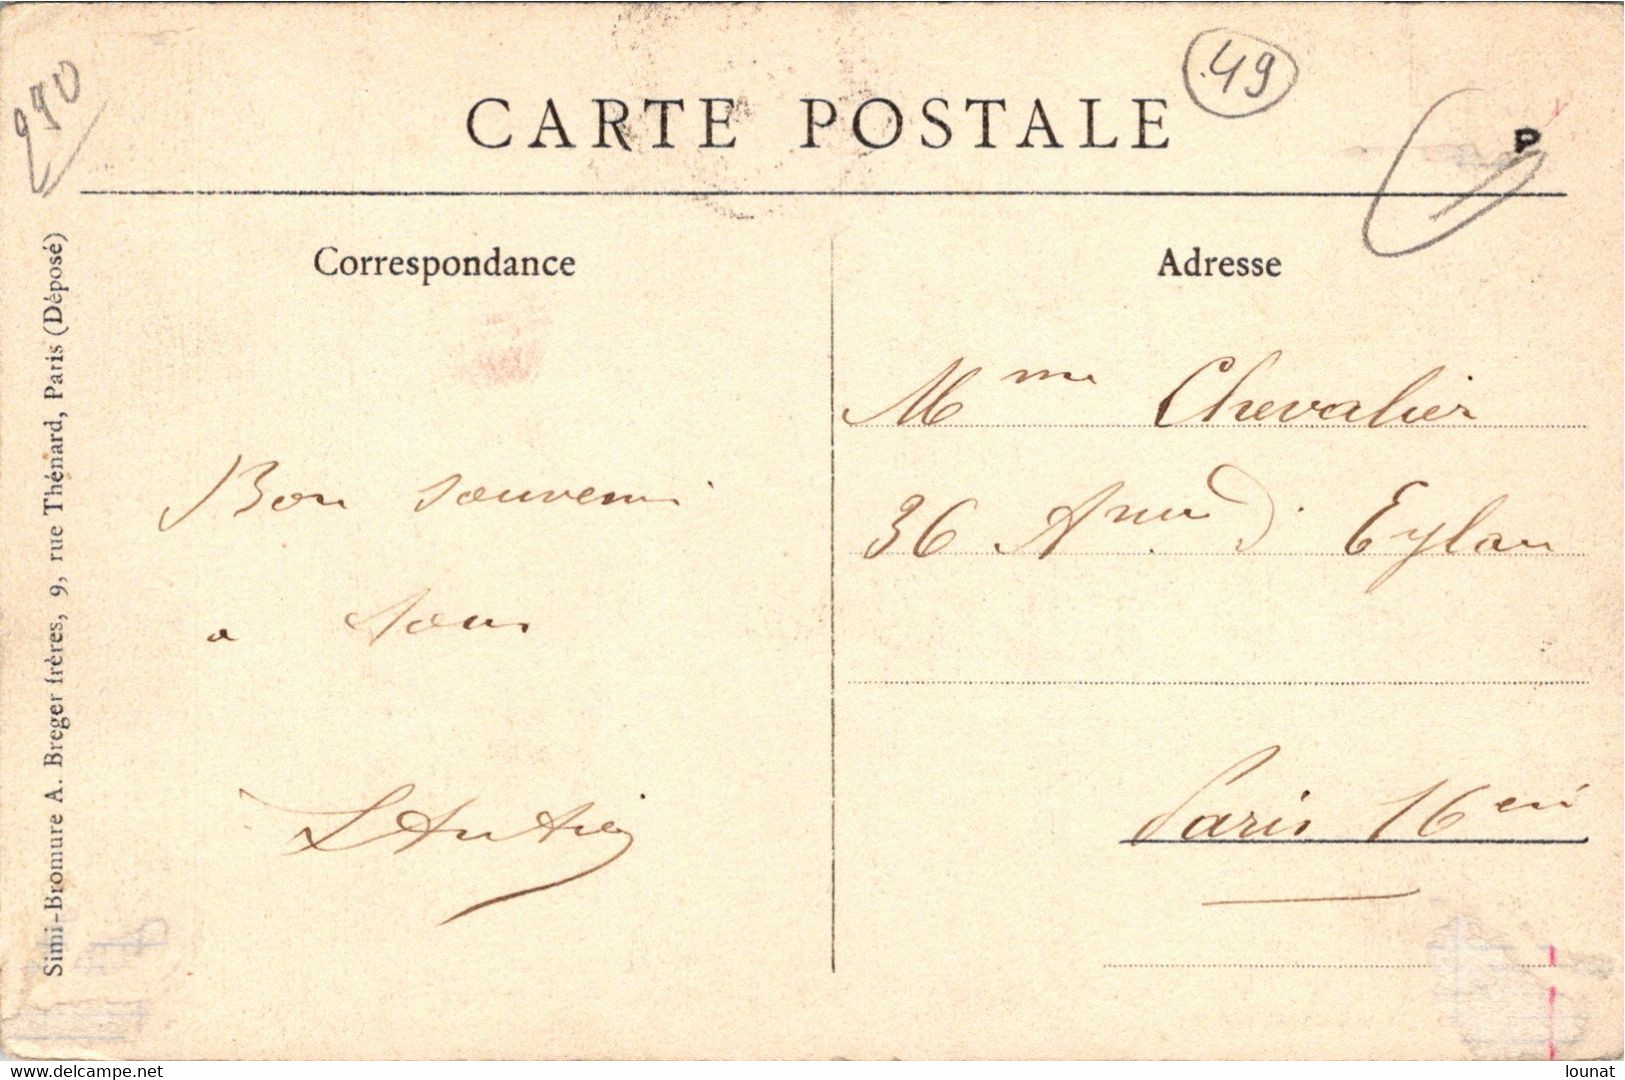 990
49
CARTE POSTALE
P
Correspondance
Adresse
Simi-Bromure A. Breger frères, 9, rue Thénard, Paris (Déposé)
Bon souvenir
a tous
Mme Chevalier
36 Avnue d'Eylau
Paris 16em
delcampe.net
lounat